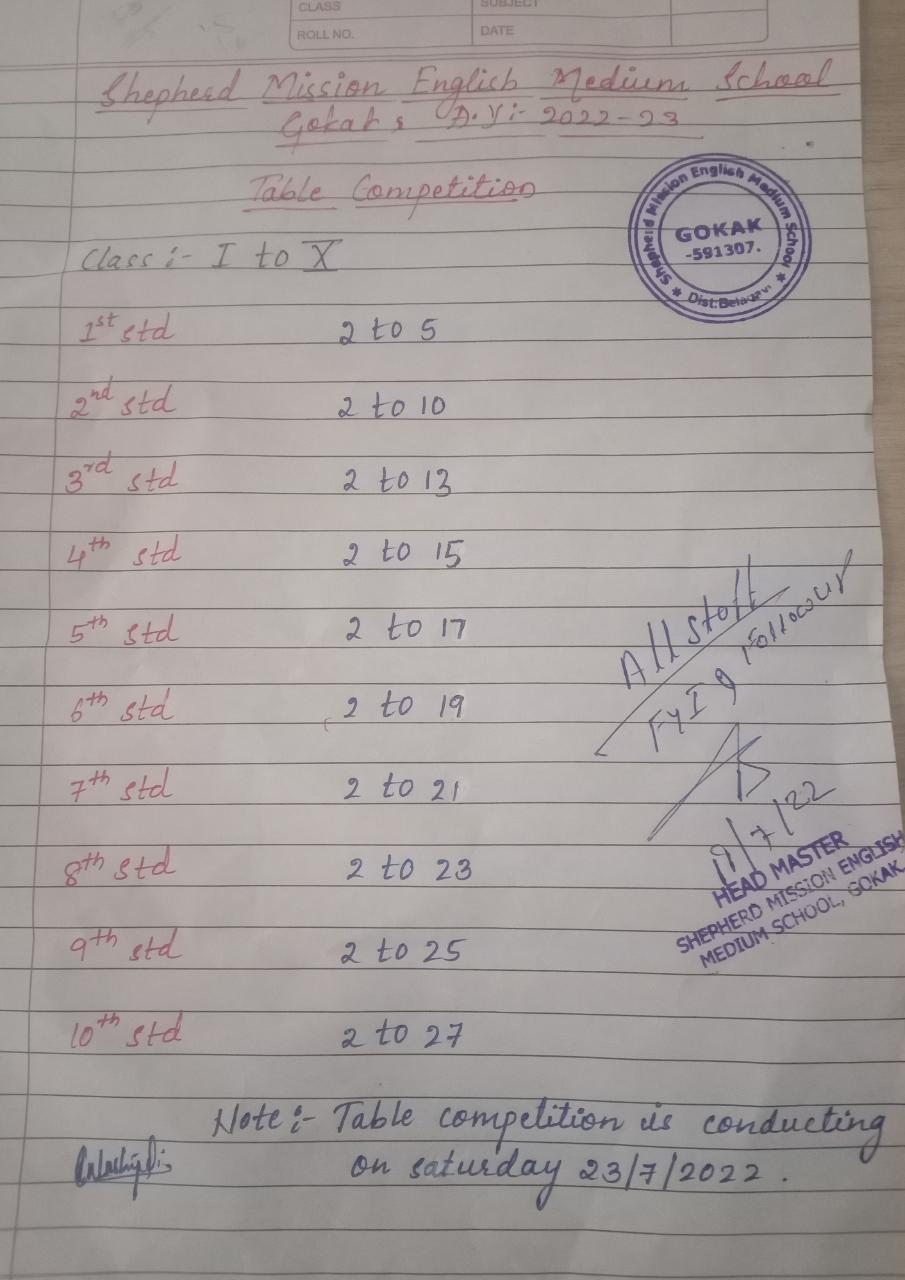 CLASS
SUBJECT
ROLL NO.
DATE
Shepherd Mission English Medium School
Gokak, A.Y:- 2022-23
Table Competition
Shepherd Mission English Medium School
GOKAK
-591307.
* Dist: Belagavi *
Class :- I to X
1st std 2 to 5
2nd std 2 to 10
3rd std 2 to 13
4th std 2 to 15
5th std 2 to 17
6th std 2 to 19
7th std 2 to 21
8th std 2 to 23
9th std 2 to 25
10th std 2 to 27
All staff
FYI
/7/22
HEAD MASTER
SHEPHERD MISSION ENGLISH
MEDIUM SCHOOL, GOKAK
Note :- Table competition is conducting
on saturday 23/7/2022 .